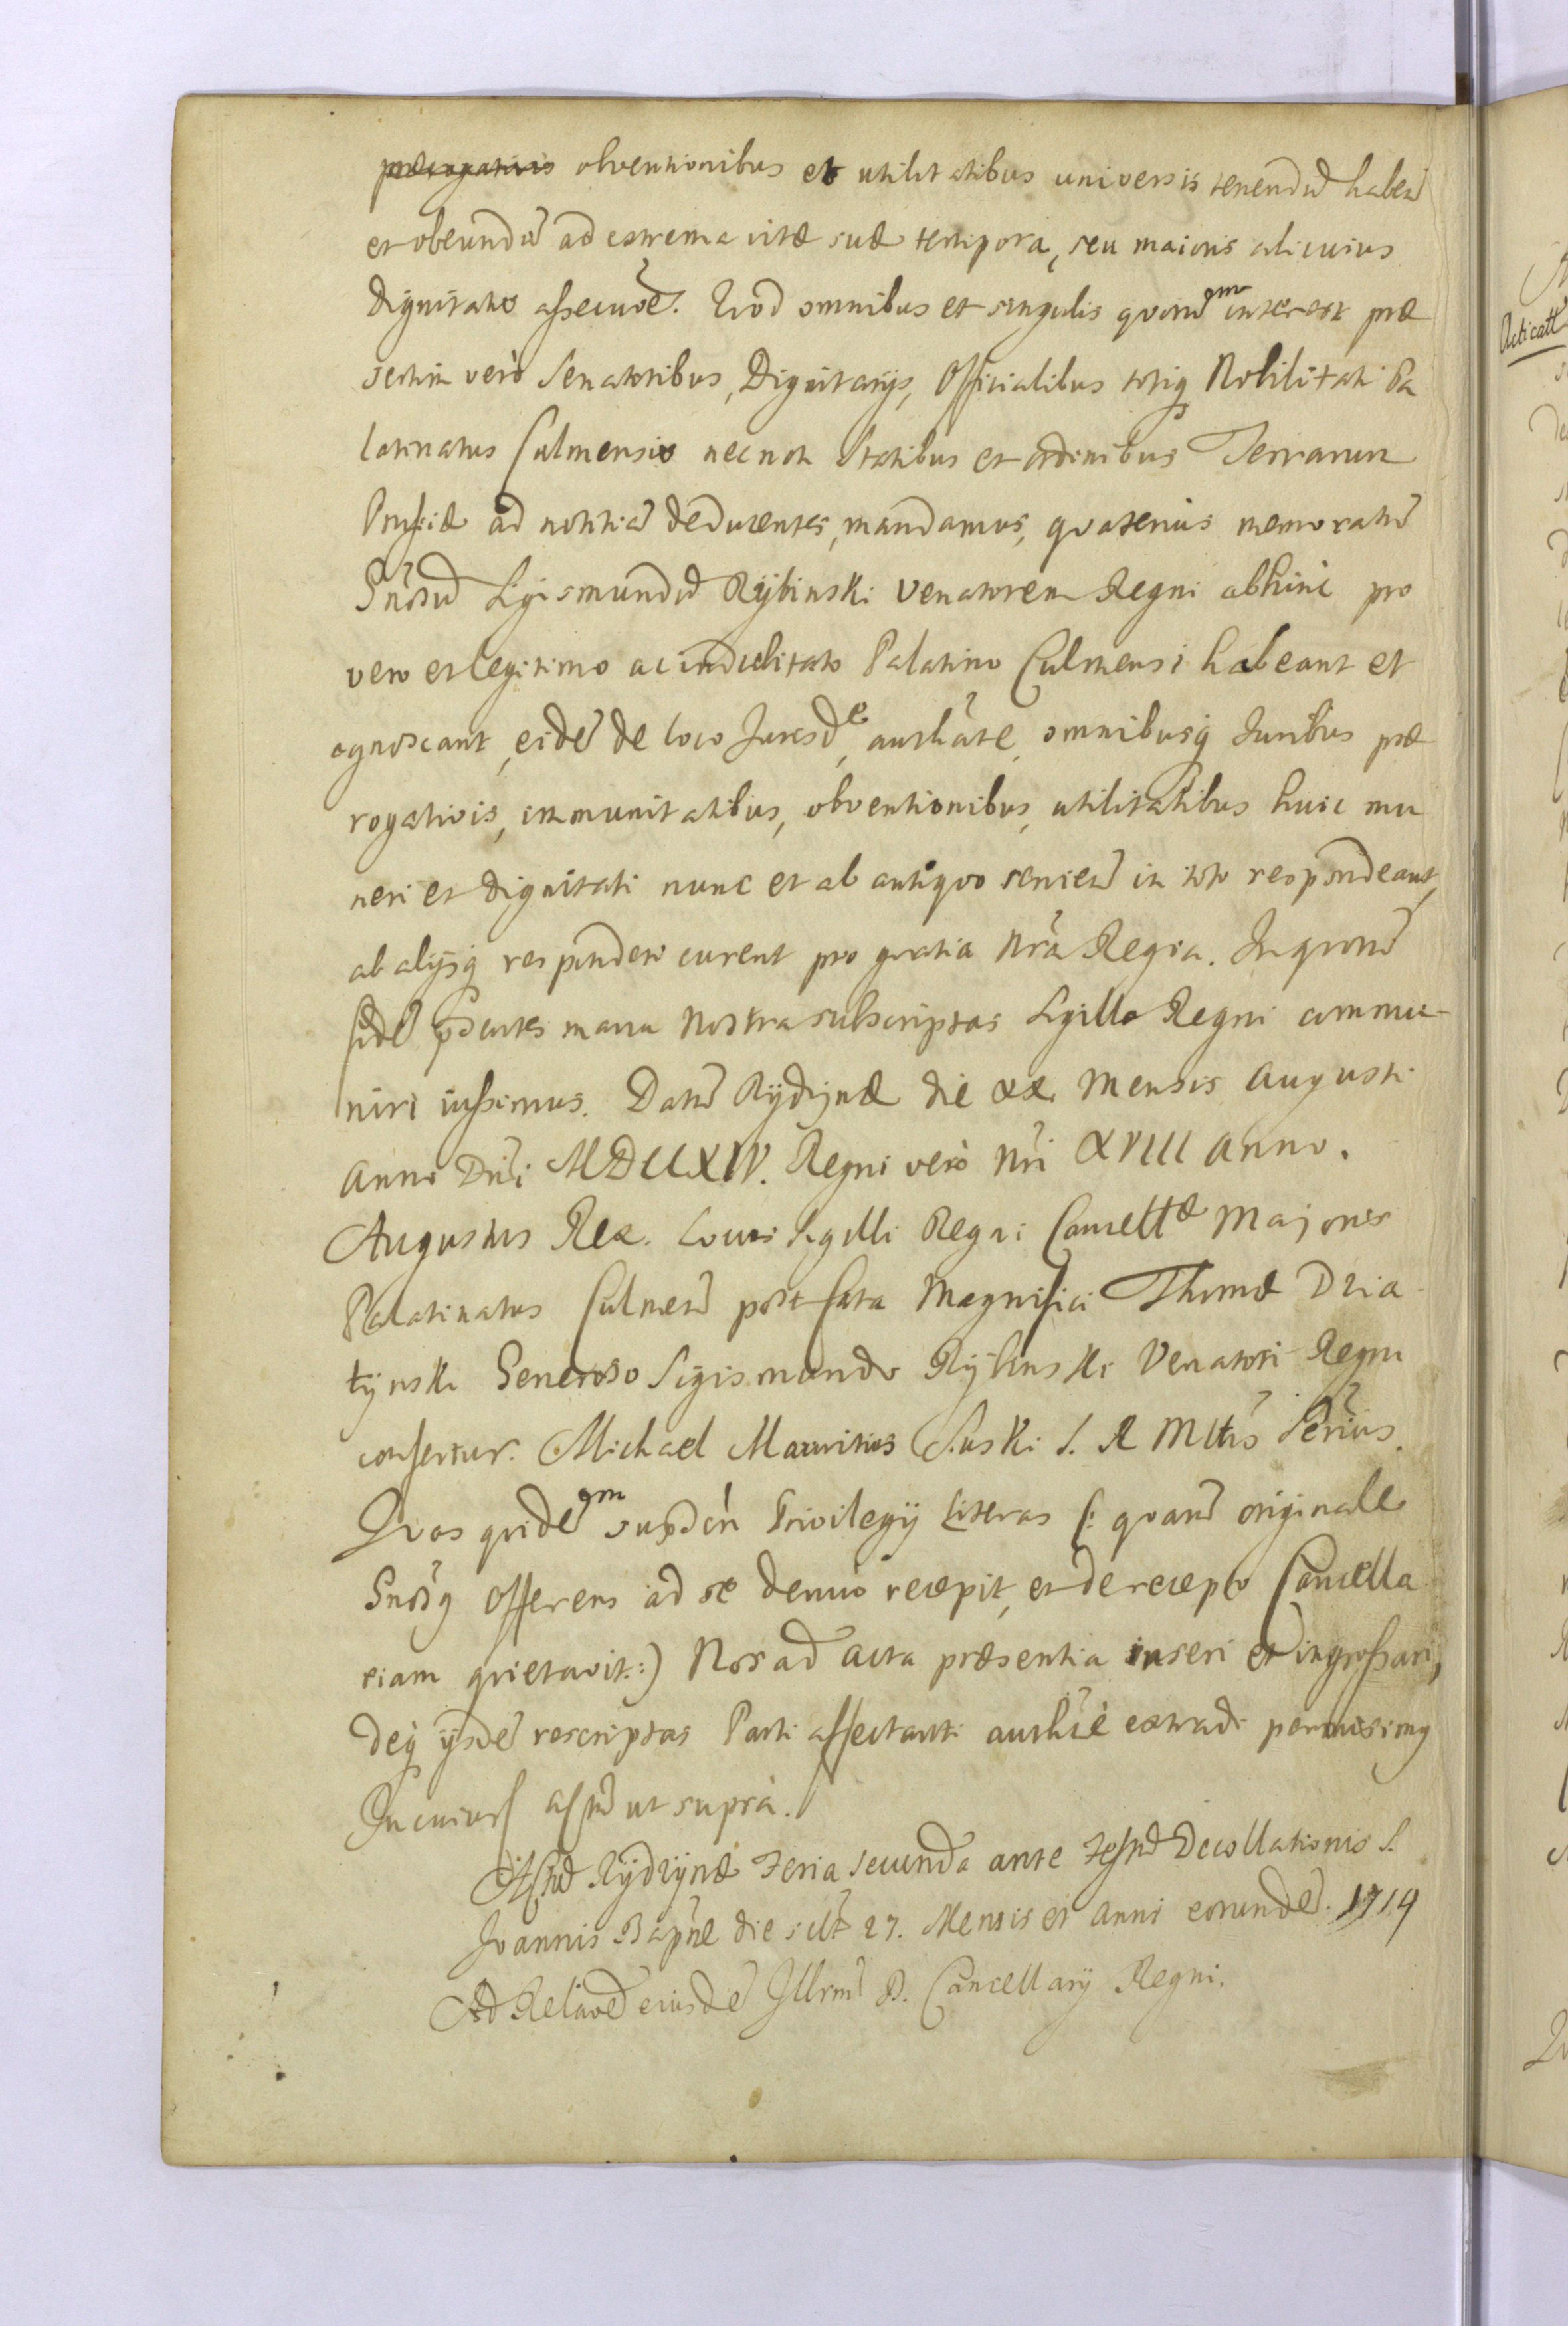 prærogativis obventionibus et utilitatibus universis tenendũ habeñ
et obeundũ ad extrema vitæ suæ tempora, seu maioris alicuius
dignitatis assecuõe. Quod omnibus et singulis quorũ interest præ
sertim verò Senatoribus, Dignitarijs, Officialibus totiq Nobilitati Pa
latinatus Culmensis nec non Statibus et ordinibus Terrarum
Prussiæ ad notitiã deducentes, mandamus, quatenus memoratũ
Gnõsũ Sigismundũ Rÿbinski Venatorem Regni abhinc pro
vero et legitimo ac indubitato Palatino Culmensi habeant et
agnoscant, eidẽ de loco Jurisdẽ, authãte, omnibusq Juribus præ
rogativis, immunitatibus, obventionibus, utilitatibus huic mu
neri et dignitati nunc et ab antiquo servieñ in toto respondeant,
ab alijsq responderi curent pro gratia Nrã Regia. In quorũ
fidẽ pñtes manu Nostra subscriptas Sigillo Regni commu-
niri iussimus. Datũ Rÿdzÿnæ die xx Mensis Augusti
Anno Dñi MDCCXIV. Regni verò Nri XVIII anno.
Augustus Rex. Locus Sigilli Regni Cancellæ Majoris
Palatinatus Culmeñ post fata Magnifici Thomæ Dzia
łÿnski Generoso Sigismundo Rÿbinski Venatori Regni
confertur. Michael Mauritius Suski S. R Mttis Secrius.
Quas quidẽ Privilegij Literas (: quarũ originale
Gnõsq Offerens ad se denuo recepit, et de recepto Cancella
riam quietavit:) Nos ad acta præsentia inseri et ingrossari,
deq ijsdẽ rescriptas Parti affectanti authcè extradi permisimq
In cuius actũ ut suprà.
Actũ Rÿdzÿnæ Feria secunda ante Festũ Decollationis S.
Joannis Bapñe die sclt 27. Mensis et Anni eorundẽ. 1714
Ad Relaõẽ eiusdẽ Illrmi D. Cancellarij Regni.
Acticatt